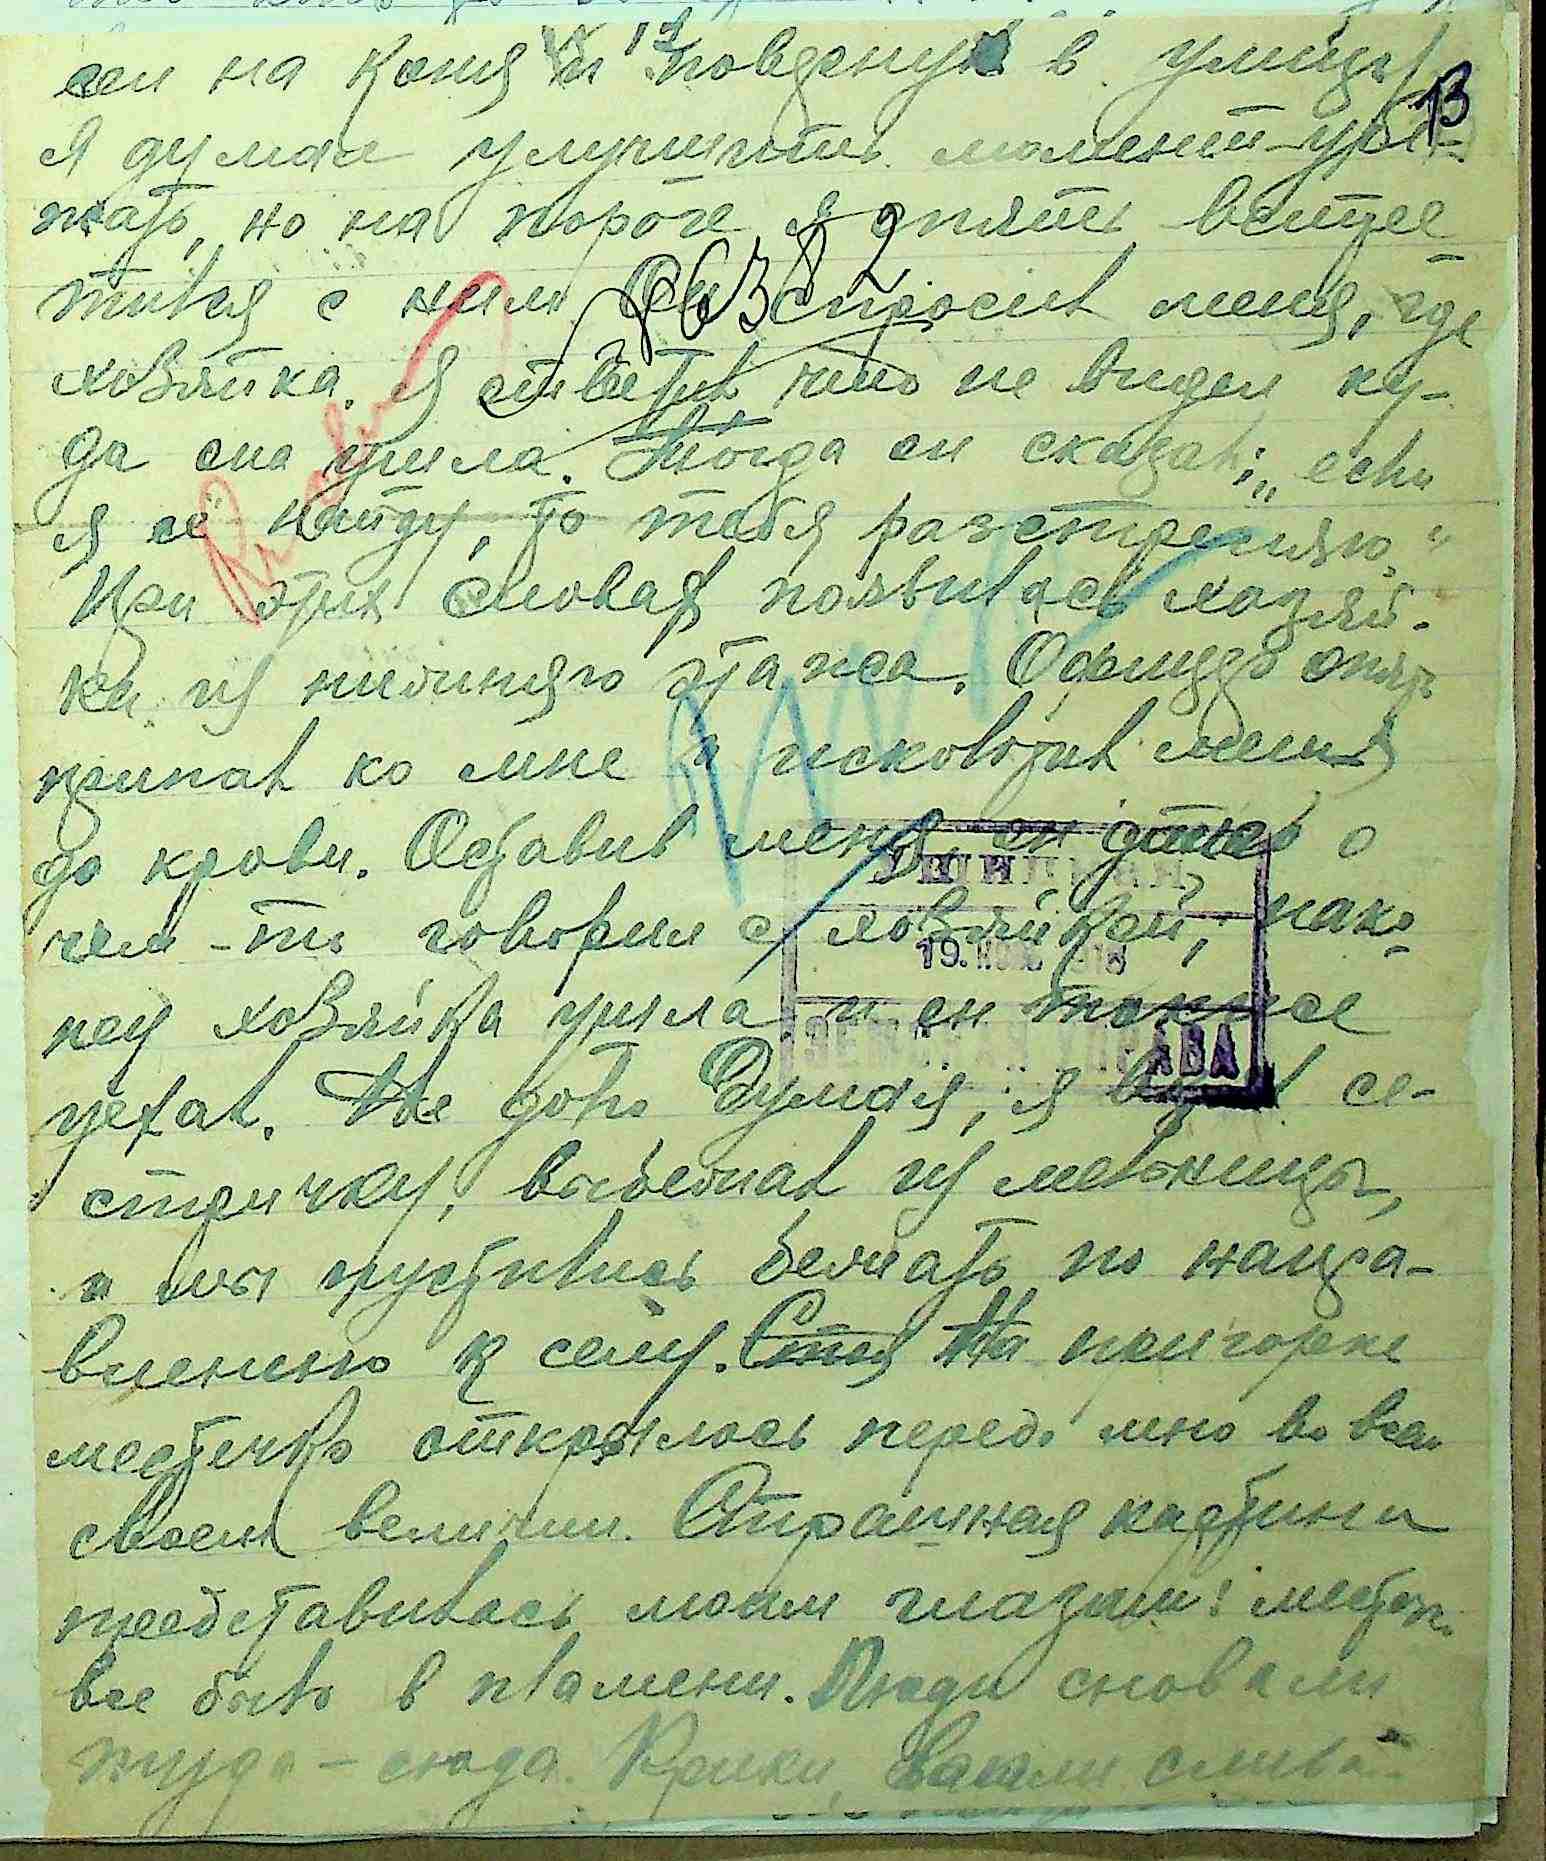 сел на коня и повернул в улицу
13
Я думал улучшить момент убе-
жать, но на пороге я опять встре-
тился с ним. Он спросил меня, где
8638 2
хозяйка. Я ответил что не видел ку-
да она ушла. Тогда он сказал: „если
я её найду, то тебя разстреляю."
При этих словах появилась хозяй-
ка из нижняго этажа. Офицер опять
припал ко мне и исковозил меня
до крови. Оставив меня, он долго о
чем-то говорил с хозяйкой, нако-
нец хозяйка ушла и он также
уехал. Не долго думая, я взял се-
стричку, выбежал из мельницы,
и мы пустились бежать по напра-
влению к селу. На пригорке
местечко открылось передо мно во всем
своем величии. Страшная картина
представилась моим глазам: местечко
все было в пламени. Люди сновали
туда-сюда. Крики, вопли слива-
19. 1918
ЗЕМСКАЯ УПРАВА